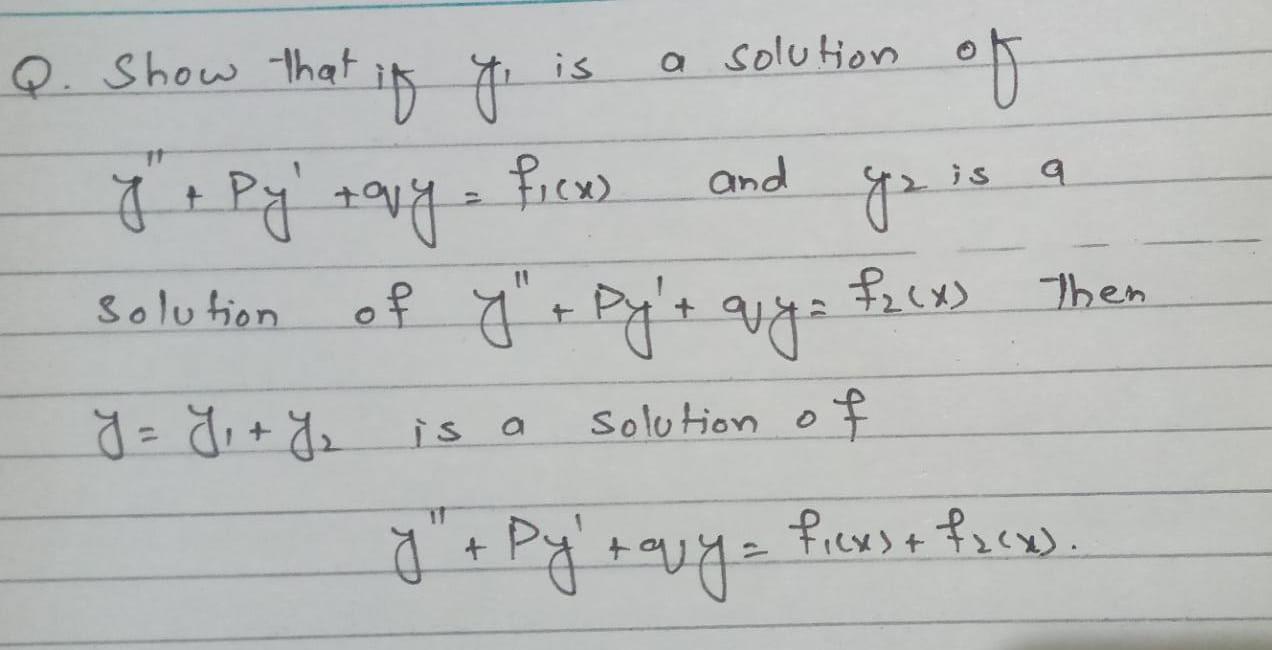 Q. Show that if y₁ is a solution of
y" + Py' + qy = f₁(x) and y₂ is a
solution of y" + Py' + qy = f₂(x) Then
y = y₁ + y₂ is a solution of
y" + Py' + qy = f₁(x) + f₂(x).